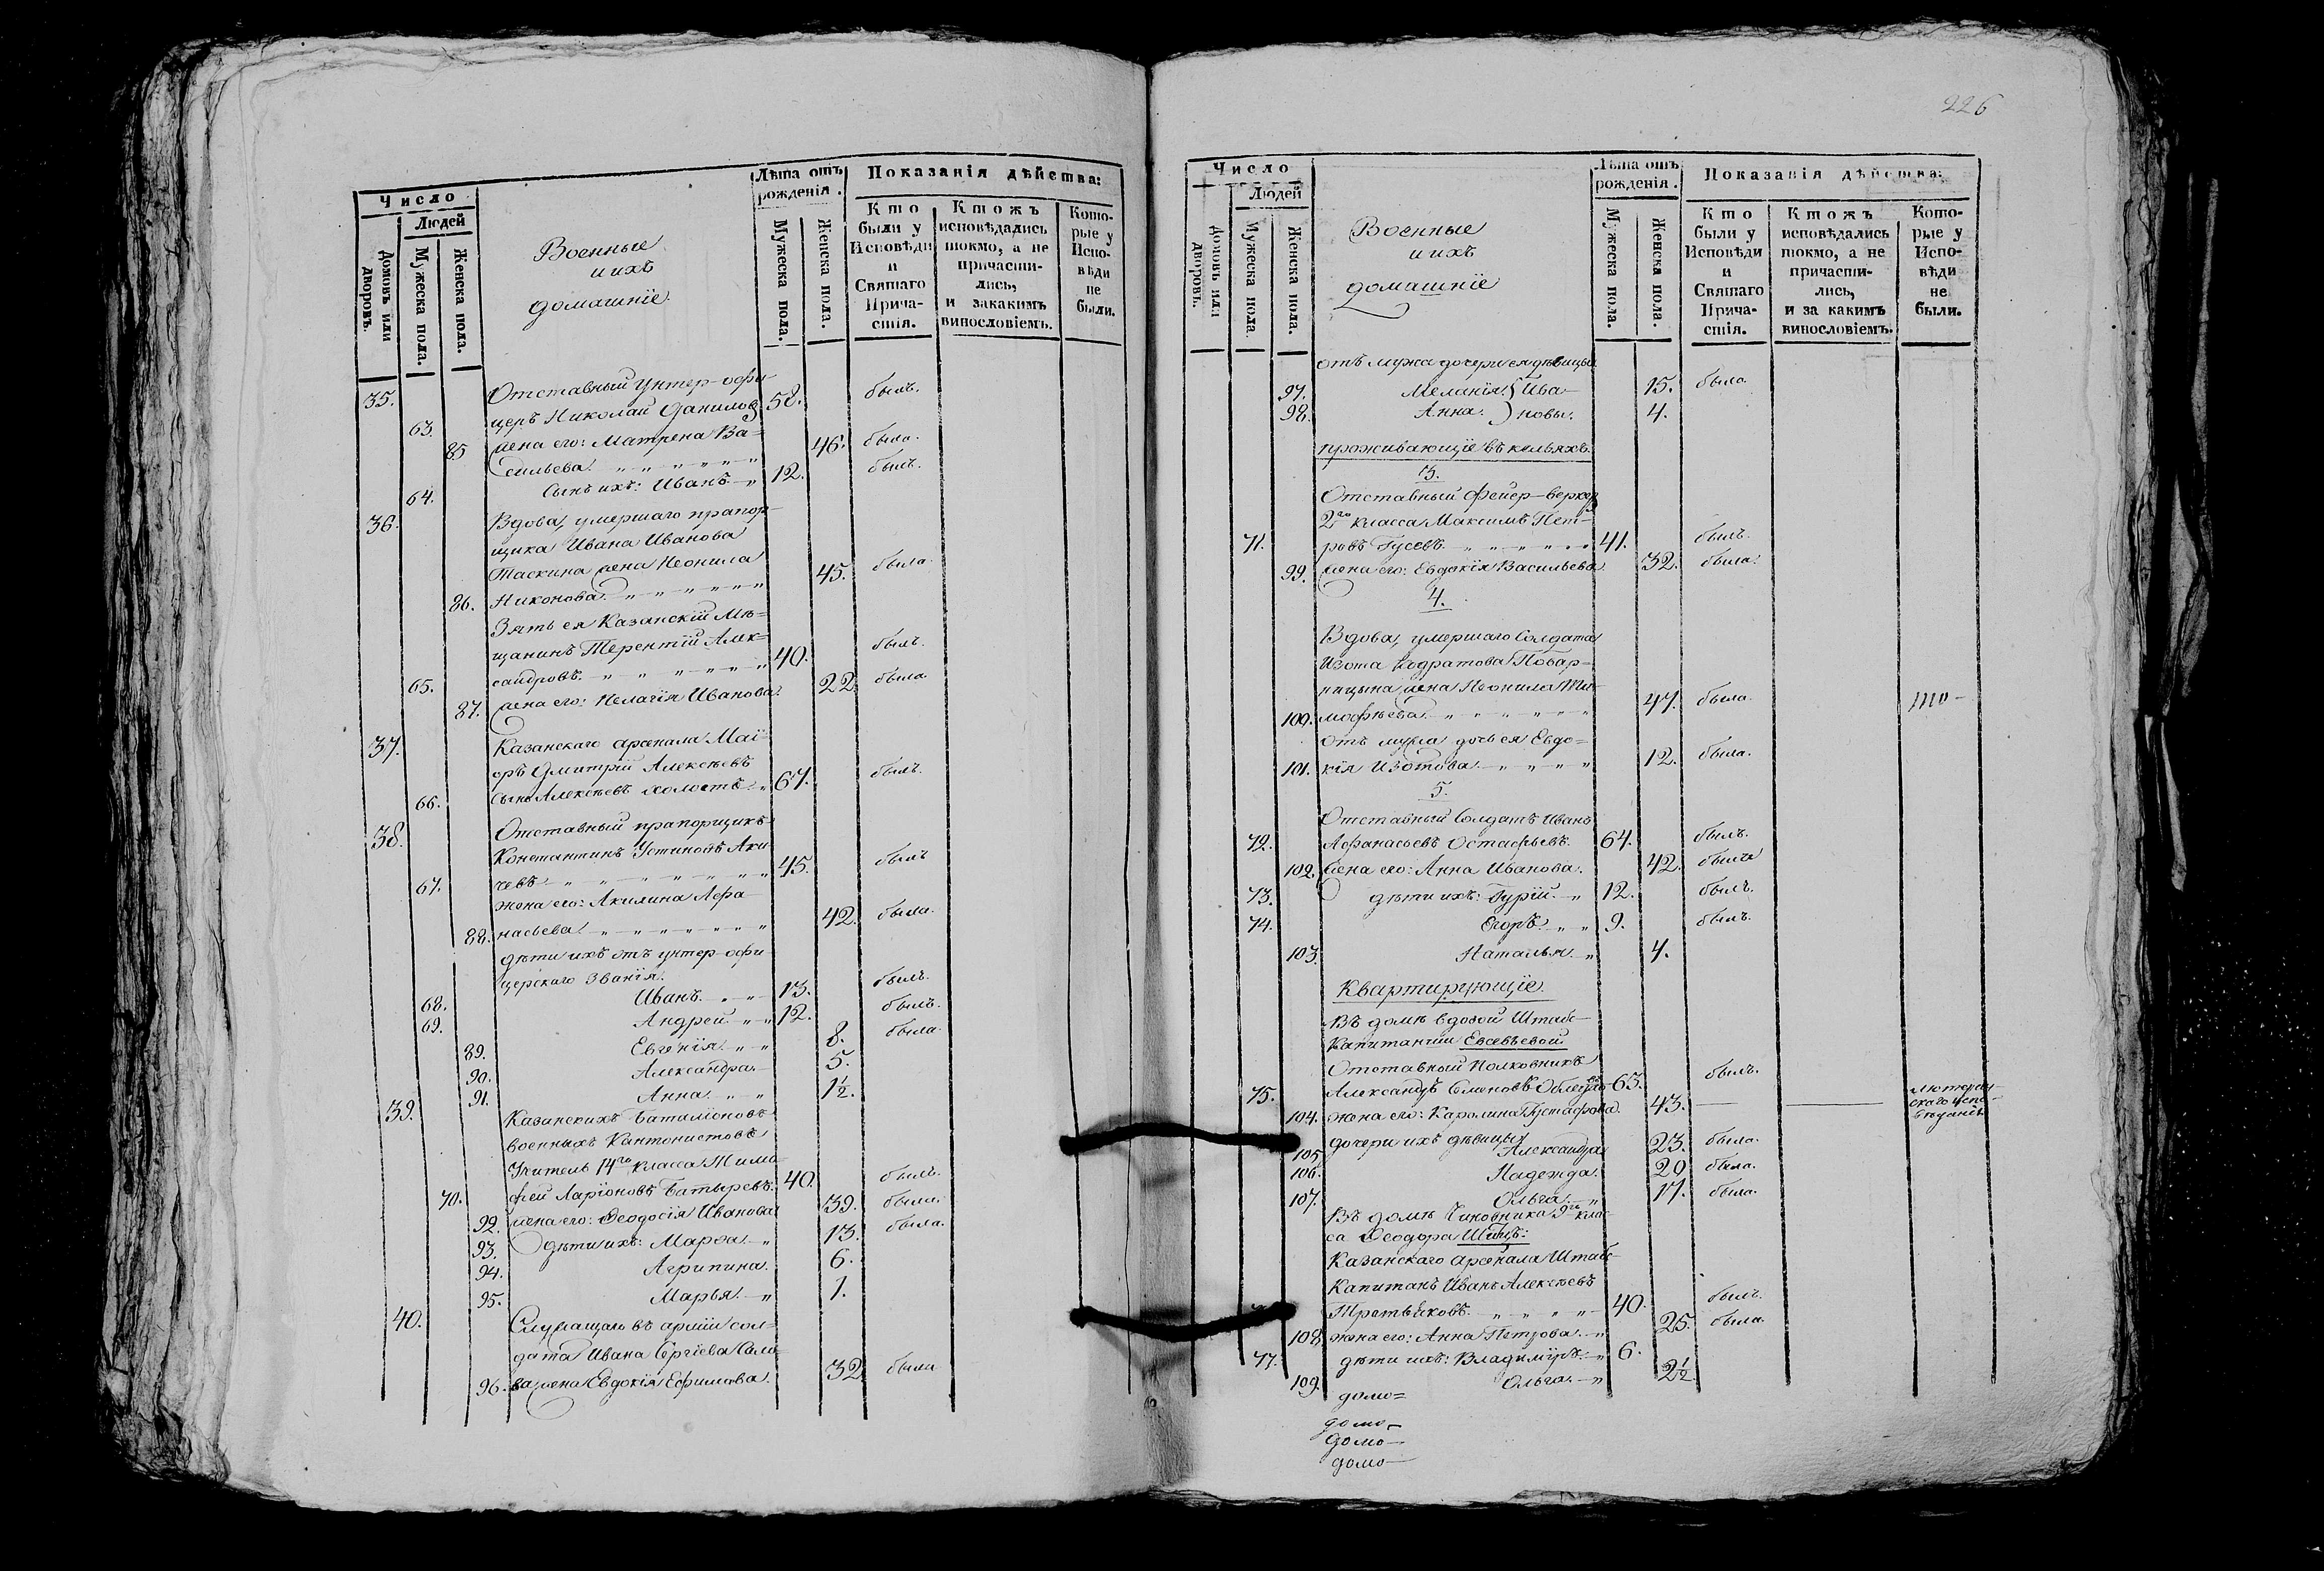 Число
Людей
Домовъ или дворовъ.
Мужеска пола.
Женска пола.
Военные
и ихъ
домашніе.
Лѣта отъ рожденія.
Мужеска пола.
Женска пола.
Показанія дѣйства:
Кто были у Исповѣди и Святаго Причастія.
Ктожъ исповѣдались токмо, а не причастились, и закакимъ винословіемъ.
Которые у Исповѣди не были.
35. Отставный унтер-офи-
63. церъ Николай Даниловъ 58. былъ.
85 жена его: Матрена Ва=
сильева. 46. была.
64. Сынъ ихъ: Иванъ 12. былъ.
36. Вдова, умершаго прапор-
щика Ивана Иванова
Таскина жена Неонила
86. Никонова. 45. была.
Зять ея Казанскій Мѣ=
щанинъ Терентій Алек=
65. сандровъ. 40. былъ.
87. жена его: Пелагія Иванова 22. была.
37. Казанскаго арсенала Маі-
оръ Дмитрій Алексѣевъ
66. сынъ Алексѣевъ холостъ 67. былъ.
38. Отставный прапорщикъ
Константинъ Устиновъ Аки
67. чевъ 45. былъ
жена его: Акилина Афа-
88. насьева 42. была.
дѣти ихъ отъ унтер-офи
церскаго званія.
68. Иванъ 13. былъ.
69. Андрей 12. былъ.
89. Евгенія 8. была.
90. Александра 5.
91. Анна 1½.
39. Казанскихъ Баталіоновъ
военныхъ Кантонистовъ
Учитель 14го класса Тимо
70. фей Ларіоновъ Батыревъ. 40. былъ.
92. жена его: Ѳеодосія Иванова 39. была.
93. дѣти ихъ: Марѳа 13. была.
94. Агрипина. 6.
95. Марья 1.
40. Служащаго въ арміи сол=
дата Ивана Сергіева
96. жена Евдокія Ефимова. 32 была
226
Число
Людей
Домовъ или дворовъ.
Мужеска пола
Женска пола.
Военные
и ихъ
домашніе
Лѣта отъ рожденія.
Мужеска пола.
Женска пола.
Показанія дѣйства:
Кто были у Исповѣди и Святаго Причастія.
Ктожъ исповѣдались токмо, а не причастились, и за какимъ винословіемъ.
Которые у Исповѣди не были.
отъ мужа дочери ея дѣвицы
97. Меланія Ива- 15. была.
98. Анна. новы. 4.
проживающіе въ кельяхъ.
3.
Отставный фейер-веркеръ
2го класса Максимъ Пет-
71. ровъ Гусевъ. 41. былъ.
99. жена его: Евдокія Васильева 32. была.
4.
Вдова, умершаго Солдата
Изота Кодратова Повар=
ницына жена Неонила Ти-
100. мофѣева. 47. была. то-
отъ мужа дочь ея Евдо=
101. кія Изотова 12. была.
5.
Отставный Солдатъ Иванъ
72. Афанасьевъ Остафьевъ. 64. былъ.
102. жена его: Анна Иванова. 42. была
73. дѣти ихъ: Гурій. 12. былъ.
74. Егоръ. 9. былъ.
103. Наталья. 4.
Квартирующіе
Въ домѣ вдовой Штабс-
Капитанши Евсевьевой
Отставный Полковникъ
75. Александръ Семеновъ 63. былъ.
104. жена его: Каролина Густафова. 43. лютеран-
скаго испо-
вѣданія
дочери ихъ дѣвицы
105 Александра 23. была.
106. Надежда. 20 была.
107. Ольга. 17. была.
Въ домѣ Чиновника 9го кла-
са Ѳеодора
Казанскаго арсенала Штабс-
Капитанъ Иванъ Алексѣевъ
Третьяковъ. 40. былъ.
108. жена его: Анна Петрова. 25. была.
77. дѣти ихъ: Владиміръ. 6.
109. Ольга. 2½.
домо=
домо-
Домо-
домо-